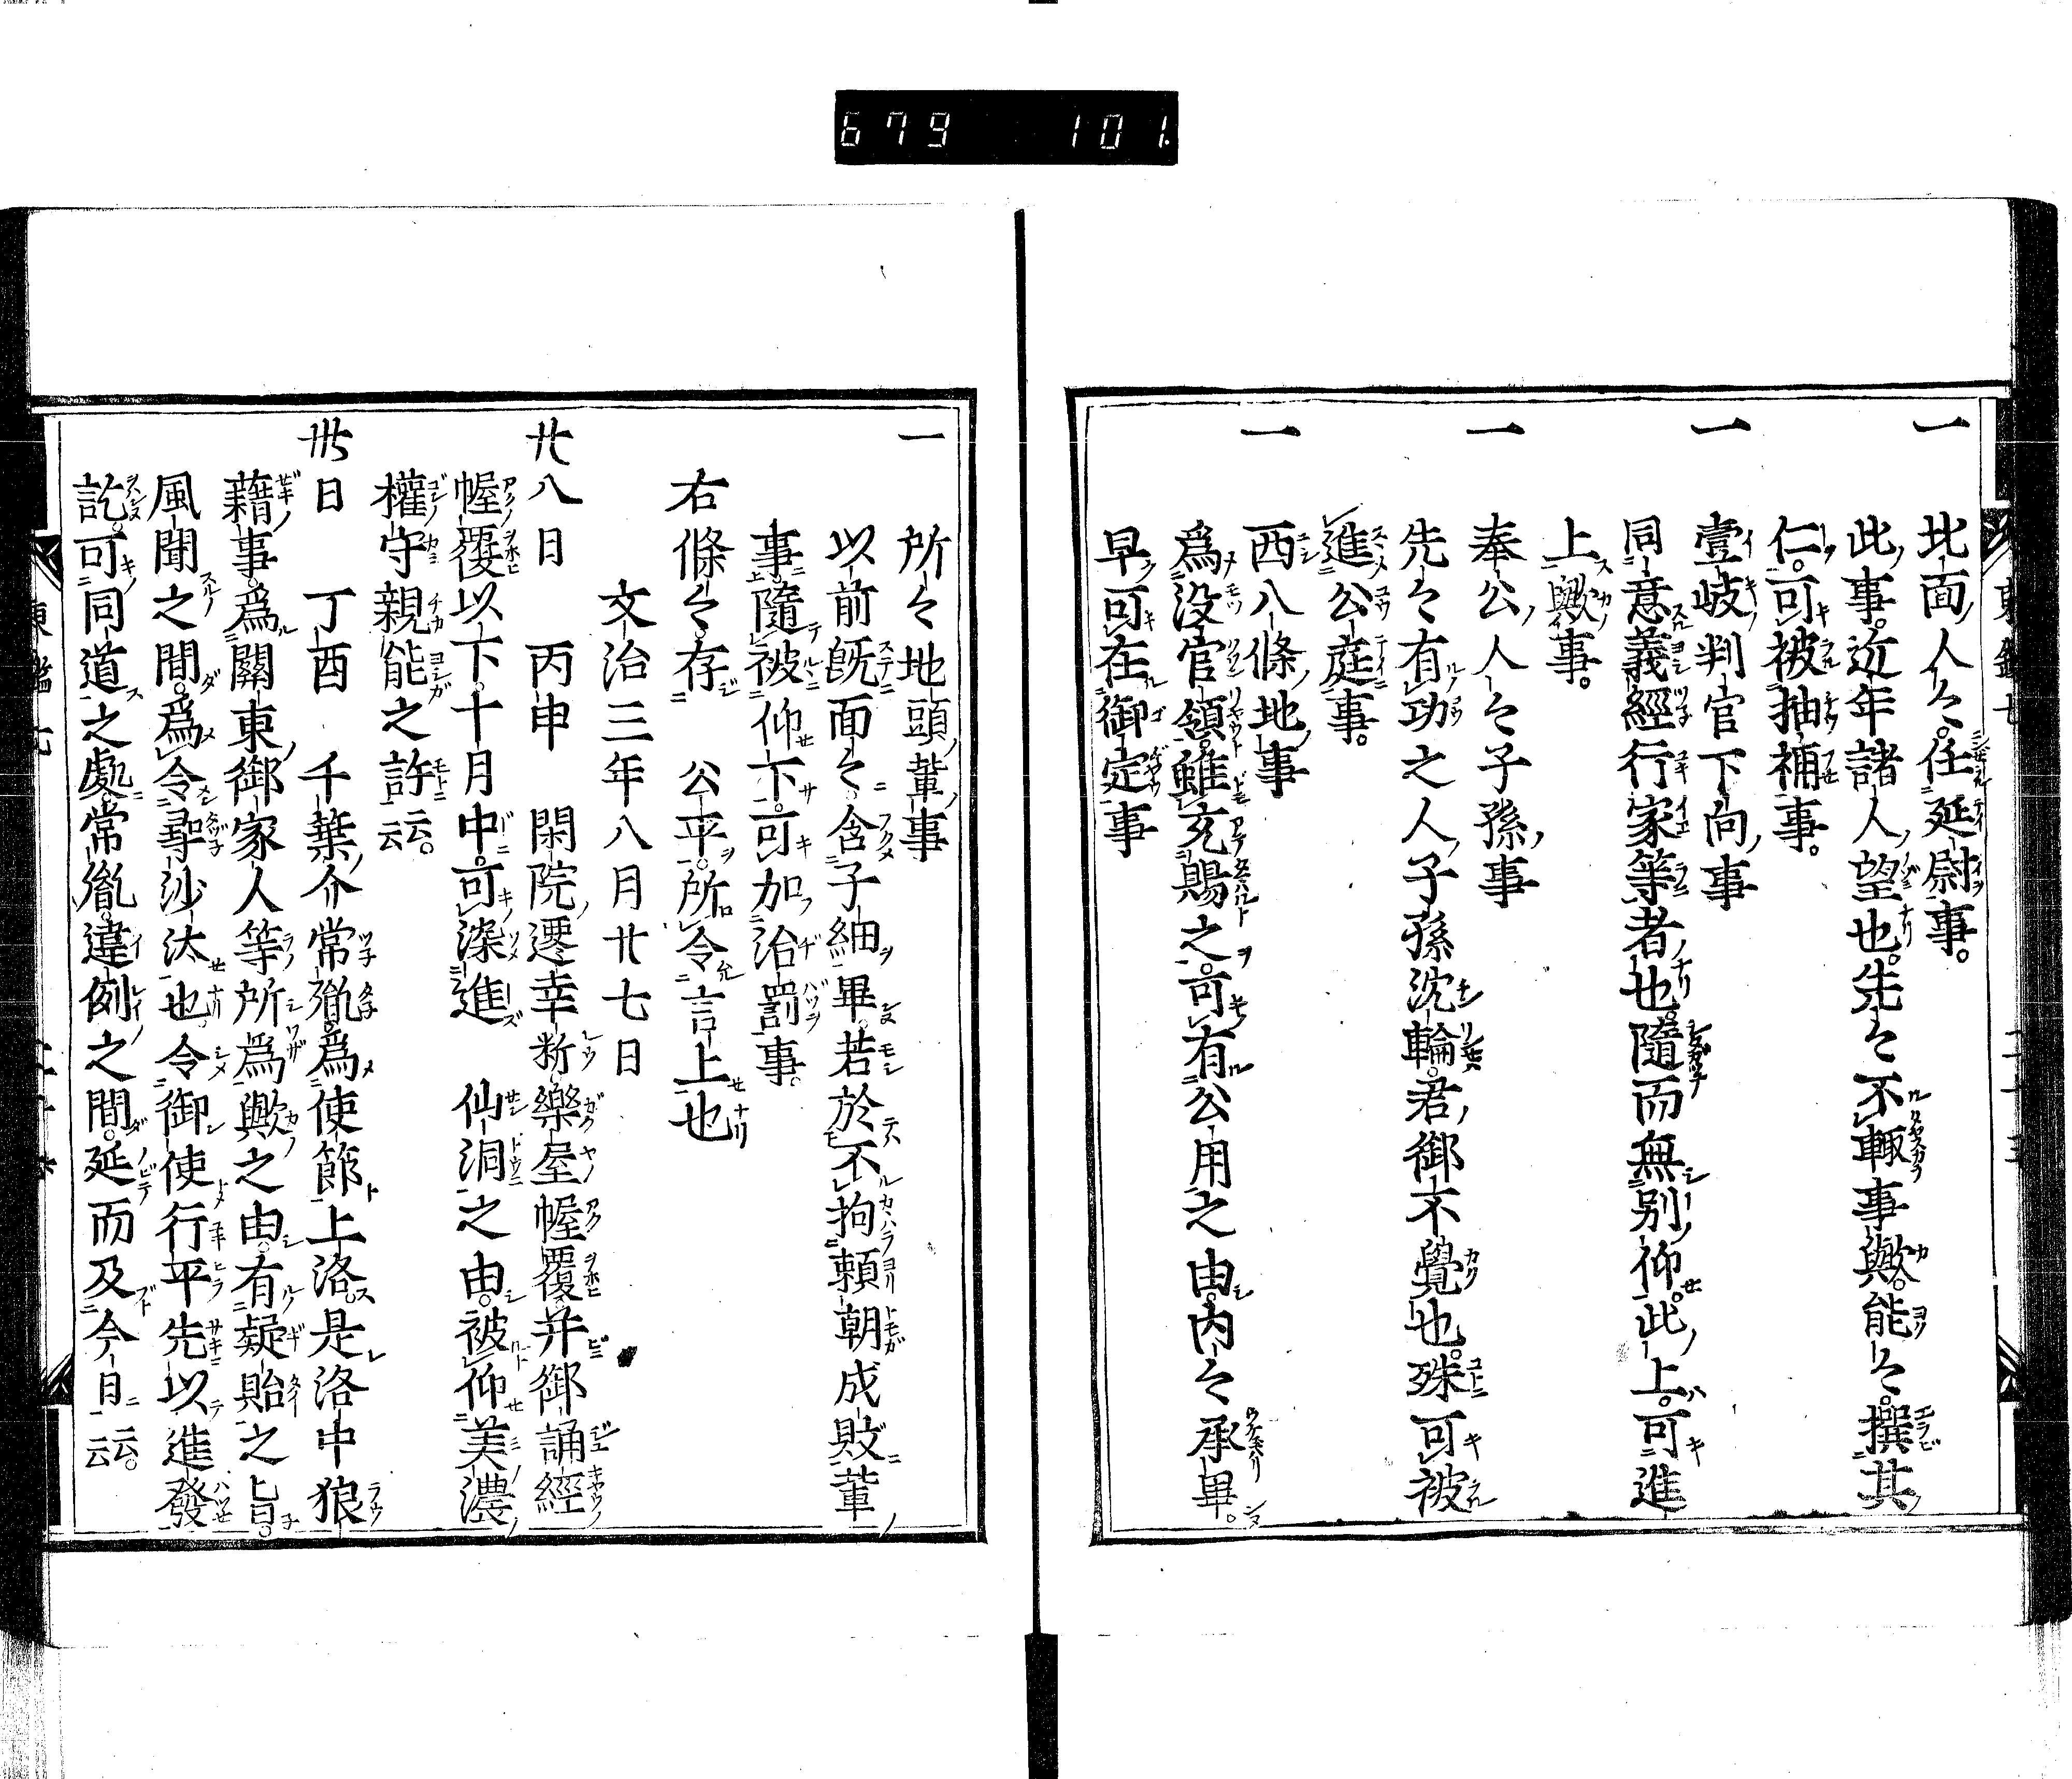 679 101
一 北面人々任延尉事。
此事。近年諸人望也。先々不輙事歟。能々撰其
仁。可被抽補事。
一 壹岐判官下向事
同意義經行家等者也。隨而無別仰。此上。可進
上歟事。
一 奉公人々子孫事
先々有功之人子孫沈輪。君御不覺也。殊可被
進公庭事。
一 西八條地事
爲没官領。雖充賜之。可有公用之由。内々承畢。
早可在御定事
一 所々地頭輩事
以前既面々含子細畢。若於不拘頼朝成敗輩
事。隨被仰下。可加治罰事。
右條々存 公平。所令言上也
文治三年八月廿七日
廿八日 丙申 閑院遷幸新樂屋幄覆并御誦經
幄覆以下。十月中。可染進 仙洞之由。被仰美濃
權守親能之許云云。
卅日 丁酉 千葉介常胤。爲使節上洛。是洛中狼
藉事。爲關東御家人等所爲歟之由。有疑貽之旨。
風聞之間。爲令尋沙汰也。令御使行平先以進發
訖。可同道之處。常胤違例之間。延而及今日云云。